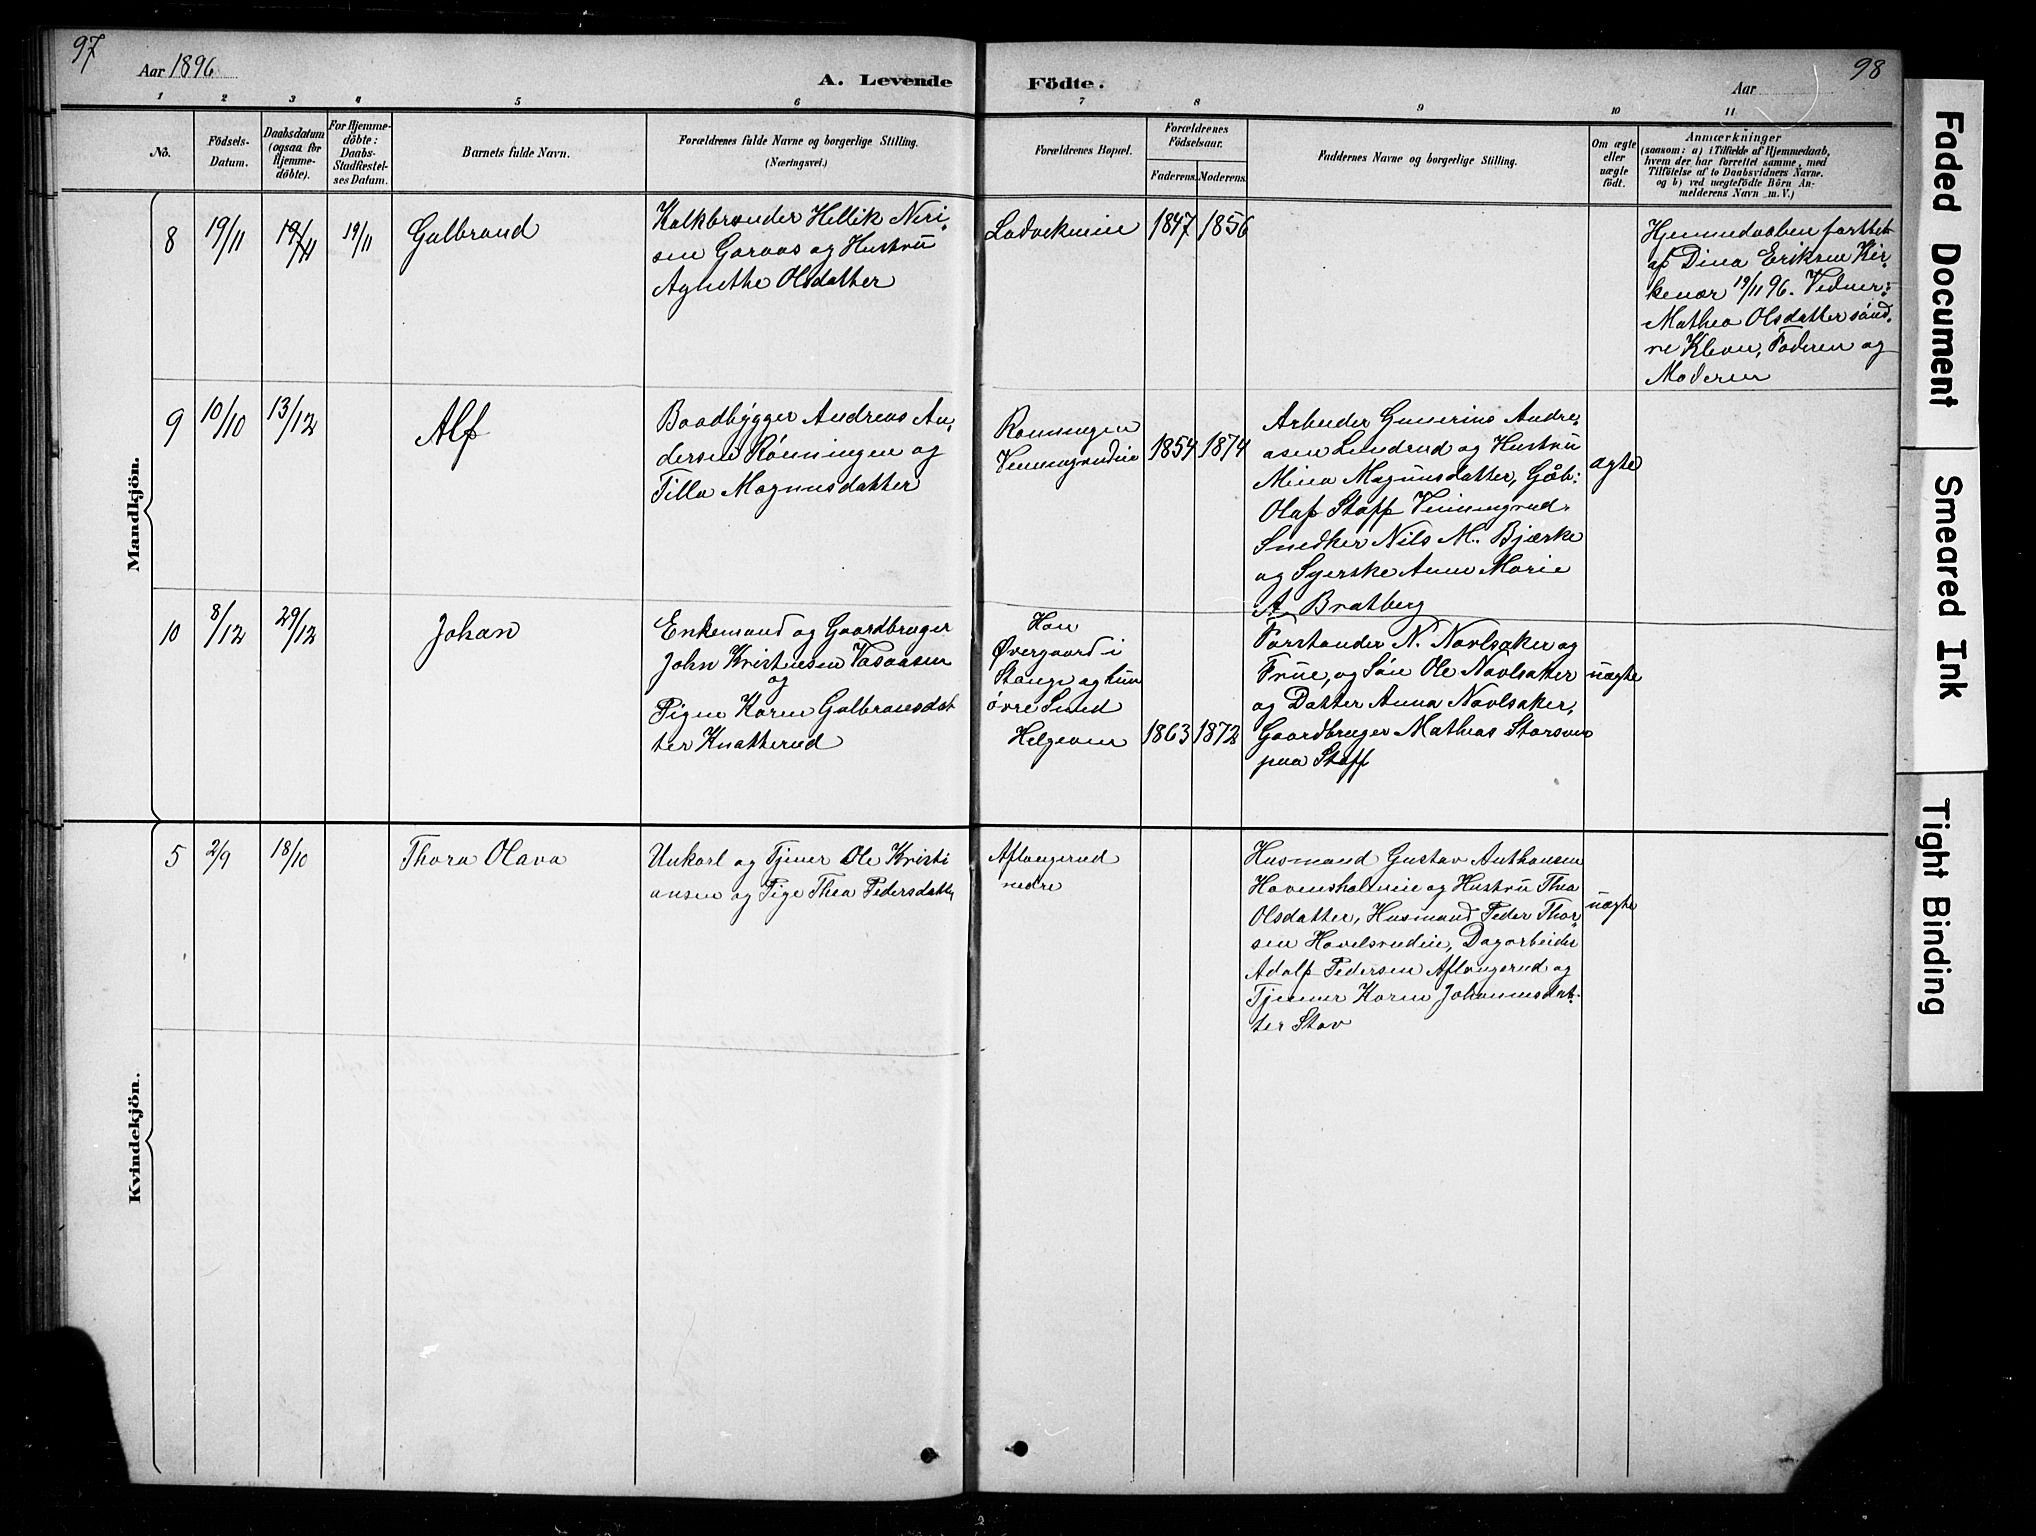 97
Aar 1896
A. Levende
Födte.
Aar
98
1
2
3
4
5
6
7
8
9
10
11
No.
Födsels-
Datum.
Daabsdatum
(ogsaa for
Hjemme-
döbte).
For Hjemme-
döbte:
Daabs-
Stadfæstel-
ses Datum.
Barnets fulde Navn.
Forældrenes fulde Navne og borgerlige Stilling.
(Næringsvei.)
Forældrenes Bopæl.
Forældrenes
Födselsaar.
Faderens.
Moderens.
Faddernes Navne og borgerlige Stilling.
Om ægte
eller
uægte
födt.
Anmærkninger
(saasom: a) i Tilfælde af Hjemmedaab,
hvem der har forrettet samme, med
Tilföielse af to Daabsvidners Navne.
og b) ved uægtefödte Börn An-
melderens Navn m. V.)
Mandkjön.
8
19/11
19/11
19/11
Gulbrand
Kalkbrænder Hellik Niri-
sen Garaas og Hustru
Agnethe Olsdatter
1847
1856
Hjemmedaaben forrettet
af Dina Eriksen Kir-
kenær 19/11 96. Vidner:
Mathea Olsdatter sönd-
re Kleven, Faderen og
Moderen
9
10/10
13/12
Alf
Baadbygger Andreas An-
dersen Rönningen og
Tilla Magnusdatter
Rönningen
1854
1874
Arbeider Gunerius Andre-
asen Linderud og Hustru
Mina Magnusdatter, Gåb:
Olaf Staff Vinningrud,
Snedker Nils M. Bjærke
og Syerske Anne Marie
A. Bratberg
ægte
10
8/12
29/12
Johan
Enkemand og Gaardbruger
John Kristensen Vasaasen
og
Pigen Karen Gulbransdat
ter Knatterud
Han
Øvergaard i
Stange og hun
övre Sund
Helgöen
1863
1872
Forstander N. Navlsaker og
Frue, og Sön Ole Navlsaker
og Datter Anna Navlsaker,
Gaardbruger Mathias Storsven
paa Staff
uægte
Kvindekjön.
5
2/9
18/10
Thora Olava
Unkarl og Tjener Ole Kristi
ansen og Pige Thea Pedersdatter
Aflangerud
nedre
Husmand Gustav Anthonsen
Hovensholmeie og Hustru Thea
Olsdatter, Husmand Peder Thor-
sen Hovelsrudeie, Dagarbeider
Adolf Pedersen Aflangerud og
Tjener Karen Johannesdat-
ter Stav
uægte
Faded Document
Smeared Ink
Tight Binding